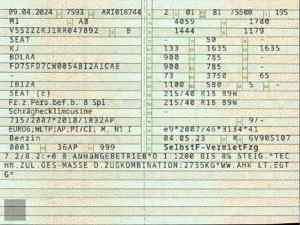 09.04.2024 7593 ARI016744 2 01 81 75500 195
M1 AB 4059 1780
VSSZZZKJ1RR047892 8 1444 1179
SEAT - 50 -
KJ 133 1635 1635
BDLAA 900 785 -
FD7SFD7CW0054BI2AICAE 900 785 -
- 73 3750 65
IBIZA 1100 580 5 -
SEAT (E) 215/40 R18 89H
Fz.z.Pers.bef.b. 8 Spl 215/40 R18 89H
Schräghecklimousine
715/2007*2018/1832AP - 9/-
EURO6;WLTP;AP;PI/CI; M, N1 I e9*2007/46*3134*41
Benzin 04.05.23 K GV905107
0001 36AP 999 Selbstf-VermietFzg
7.2/8.2:+0 B ANHÄNGEBETRIEB*O.1:1200 BIS 8% STEIG.*TEC
HN.ZUL.GES-MASSE D.ZUGKOMBINATION:2735KG*WW.AHK LT.EGT
G*